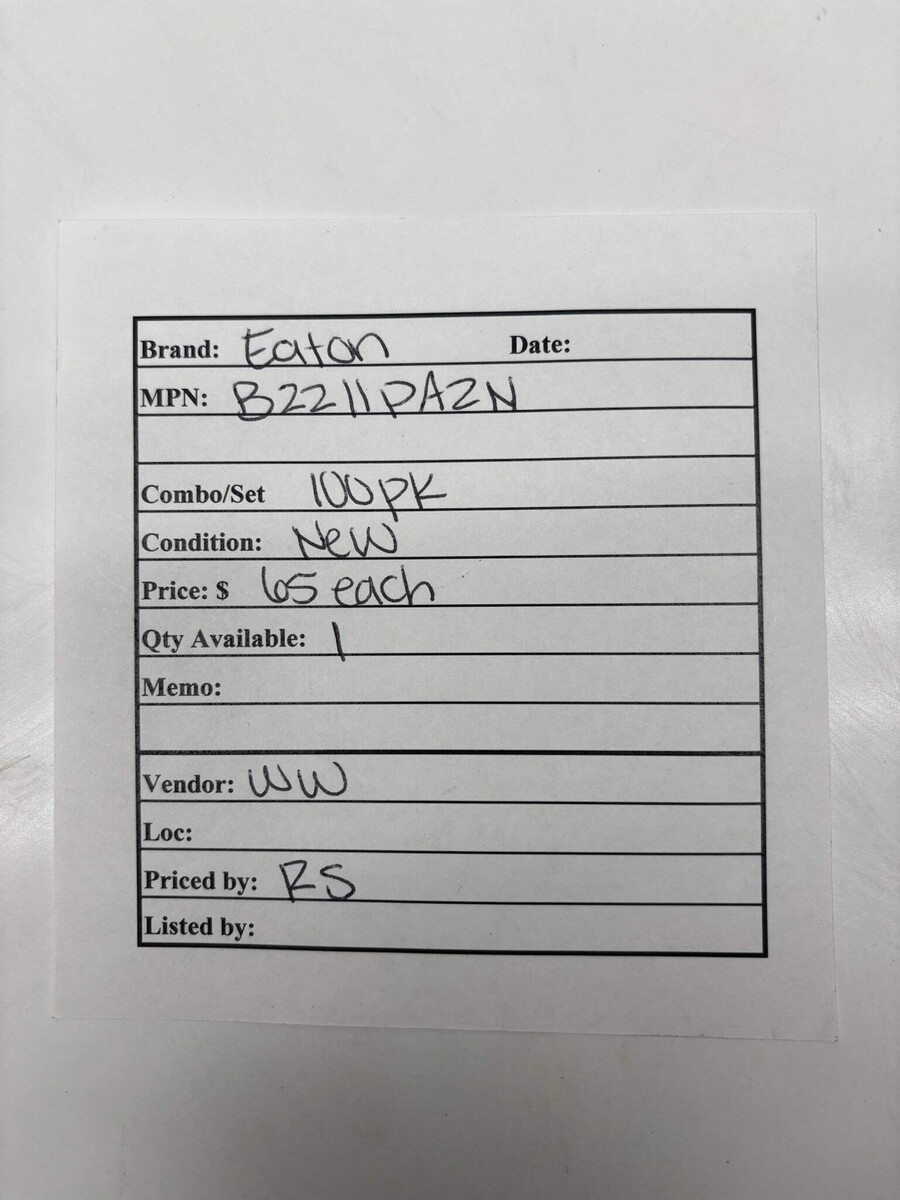 Brand: Eaton Date:
MPN: B2211PAZN
Combo/Set 100pk
Condition: New
Price: $ 65 each
Qty Available: 1
Memo:
Vendor: WW
Loc:
Priced by: RS
Listed by: